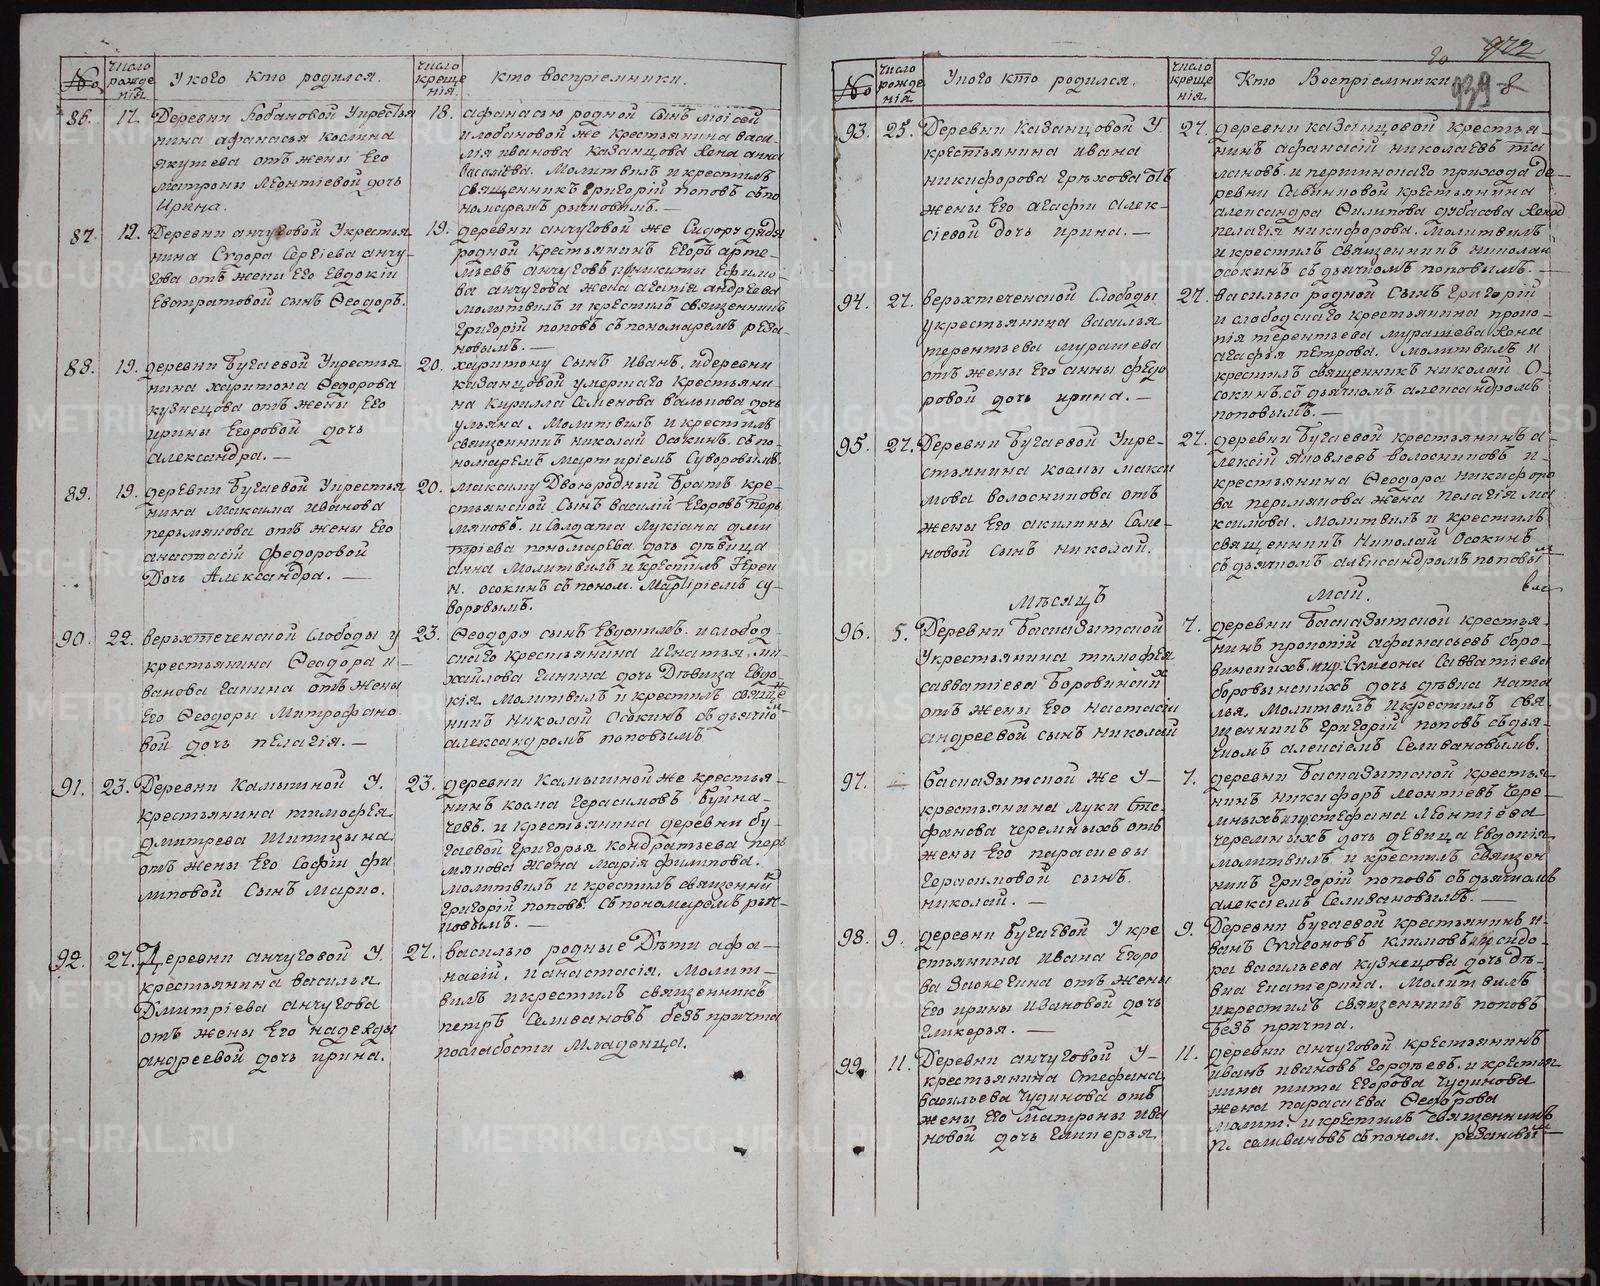 №
число рожде нiя
У кого кто родился.
число креще нiя.
кто воспрiемники.
86.
17.
Деревни Лобановой Укрестья
нина афанасья космина
якушева отъ жены Его
матроны Леонтiевой дочь
Ирина.
18.
афанасью родной сынъ моiсей
и лобановой же крестьянина васи
лiя иванова казанцова жена анна
васильева. Молитвилъ и крестилъ
священникъ Григорiй поповъ съ по
номаремъ рычковымъ.—
87.
19.
Деревни анчуговой Укрестья
нина Сидора Сергiева анчу-
гова отъ жены Его Евдокiи
Евстратовой сынъ Феодоръ.
19.
деревни анчуговой же Сидору дядя
родной крестьянинъ Егоръ арте-
мьевъ анчуговъ и никиты Ефимо-
ва анчугова жена агапiя андреева
молитвилъ и крестилъ священникъ
Григорiй поповъ съ пономаремъ реза-
новымъ.—
88.
19.
деревни Бугаевой Укрестья
нина харитона Федорова
кузнецова отъ жены Его
ирины Егоровой дочь
александра.—
20.
харитону сынъ Иванъ. и деревни
казанцовой умершаго крестьяни-
на Кирилла Семенова дочь
ульяна. Молитвилъ и крестилъ
священникъ николай Осокинъ. съ по-
номаремъ мартирiемъ Суворовымъ.
89.
19.
деревни Бугаевой Укрестья
нина Максима Иванова
пермякова отъ жены Его
анастасiи Федоровой
Дочь Александра.—
20.
максиму Двоюродный братъ кре-
стьянской сынъ василiй Егоровъ перь
мяковъ. и Солдата Лукiана дми
трiева пономарева дочь дѣвица
анна Молитвилъ и крестилъ Iерей
н. осокинъ съ поном. Мартiрiемъ су-
воровымъ.
90.
22.
верьхтеченской слободы у
крестьянина Феодора и-
ванова Ганина отъ жены
Его Феодоры митрофано
вой дочь пелагiя.—
23.
Феодора сынъ Евдокимъ. и слобод-
скаго крестьянина игнатья ми-
хайлова Ганина дочь Дѣвица Евдо-
кiя. Молитвилъ и крестилъ священ
никъ Николай Осокинъ съ дьячко-
александромъ поповымъ
91.
23.
Деревни Камышной У.
крестьянина тимофея
дмитрева Шипицына
отъ жены Его Софiи фи
липовой Сынъ марко.
23.
деревни Камышной же крестья-
нинъ косма Герасимовъ Буйна-
чевъ. и крестьянина деревни бу-
гаевой Григорья Кондратьева перь
мякова жена марiя филипова.
молитвилъ и крестилъ священникъ
Григорiй поповъ. съ пономаремъ рыч-
ковымъ.—
92.
27.
Деревни анчуговой У.
крестьянина василья
Дмитрiева анчугова
отъ жены Его надежды
андреевой дочь ирина.
27.
василью родные Дѣти афа-
насiй. и анастасiя. Молит-
вилъ и крестилъ священникъ
петръ Селивановъ безъ причта
по слабости Младенца.
922
939
№
число рожде нiя
У кого кто родился.
число креще нiя.
Кто Воспрiемники
93.
25.
Деревни Казанцовой У
крестьянина ивана
никифорова Грѣхова отъ
жены Его агафiи алек-
сiевой дочь ирина.—
27.
деревни казанцовой крестья-
нинъ афанасiй николаевъ та
лановъ. и першинскаго прихода де-
ревни Савинновой крестьянина
александра Филипова дубасова жена
пелагiя никифорова. Молитвилъ
и крестилъ священникъ николай
осокинъ съ дьячкомъ поповымъ.—
94.
27.
верьхтеченской слободы
укрестьянина василья
терентьева мурашева
отъ жены Его анны федо
ровой дочь ирина.—
27.
василью родной сынъ григорiй
и слободскаго крестьянина проко-
пiя терентьева мурашева жена
агафья петрова. молитвилъ и
крестилъ священникъ николай О-
сокинъ съ дьячкомъ александромъ
поповымъ.—
95.
27.
Деревни Бугаевой Укре-
стьянина космы макси
мова волоскикова отъ
жены Его акилины Семе-
новой сынъ николай.
27.
деревни Бугаевой крестьянинъ а-
лексiй яковлевъ волосниковъ и-
крестьянина Феодора никифоро
ва пермякова жена пелагiя ма
ксимова. Молитвилъ и крестилъ
священникъ Николай Осокинъ
съ дьячкомъ александромъ поповым
Мѣсяцъ
Май.
96.
5.
Деревни баскаzытской
Укрестьянина тимофея
савватiева Боровинских
отъ жены Его Настасiи
андреевой сынъ николай
7.
деревни баскаzытской крестья-
нинъ прокопiй афанасьевъ боро-
винскихъ. и кр: Симеона Савватiева
боровинскихъ дочь дѣвка ната
лья. Молитвилъ и крестилъ свя-
щенникъ григорiй поповъ съ дья-
чкомъ алексiемъ Селивановымъ.
97.
баскаzытской же У-
крестьянина луки сте-
фанова черемныхъ отъ
жены Его парасковы
Герасимовой сынъ
николай.—
7.
деревни баскаzытской крестья-
нинъ никифоръ леонтiевъ чере-
мныхъ и кр: стефана леонтiева
черемныхъ дочь дѣвица Евдокiя.
молитвилъ и крестилъ священ-
никъ Григорiй поповъ съ дьячкомъ
алексiемъ Селивановымъ.—
98.
9.
деревни бугаевой У кре
стьянина ивана Егоро
ва отъ жены
Его ирины ивановой дочь
Гликерья.—
9.
Деревни бугаевой крестьянинъ и-
ванъ Симеоновъ климовъ и сидо-
ра васильева кузнецова дочь дѣ-
вка Екатерина. Молитвилъ
и крестилъ священникъ поповъ
безъ причта.
99.
11.
Деревни анчуговой У-
крестьянина Стефана
васильева чудинова отъ
жены Его матроны ива
новой дочь гликерья.
11.
деревни анчуговой крестьянинъ
иванъ ивановъ гордѣевъ. и крестья
нина тита Егорова чудинова
жена параскева Федорова
молит. и крестилъ священникъ
п. селивановъ съ поном. резановым